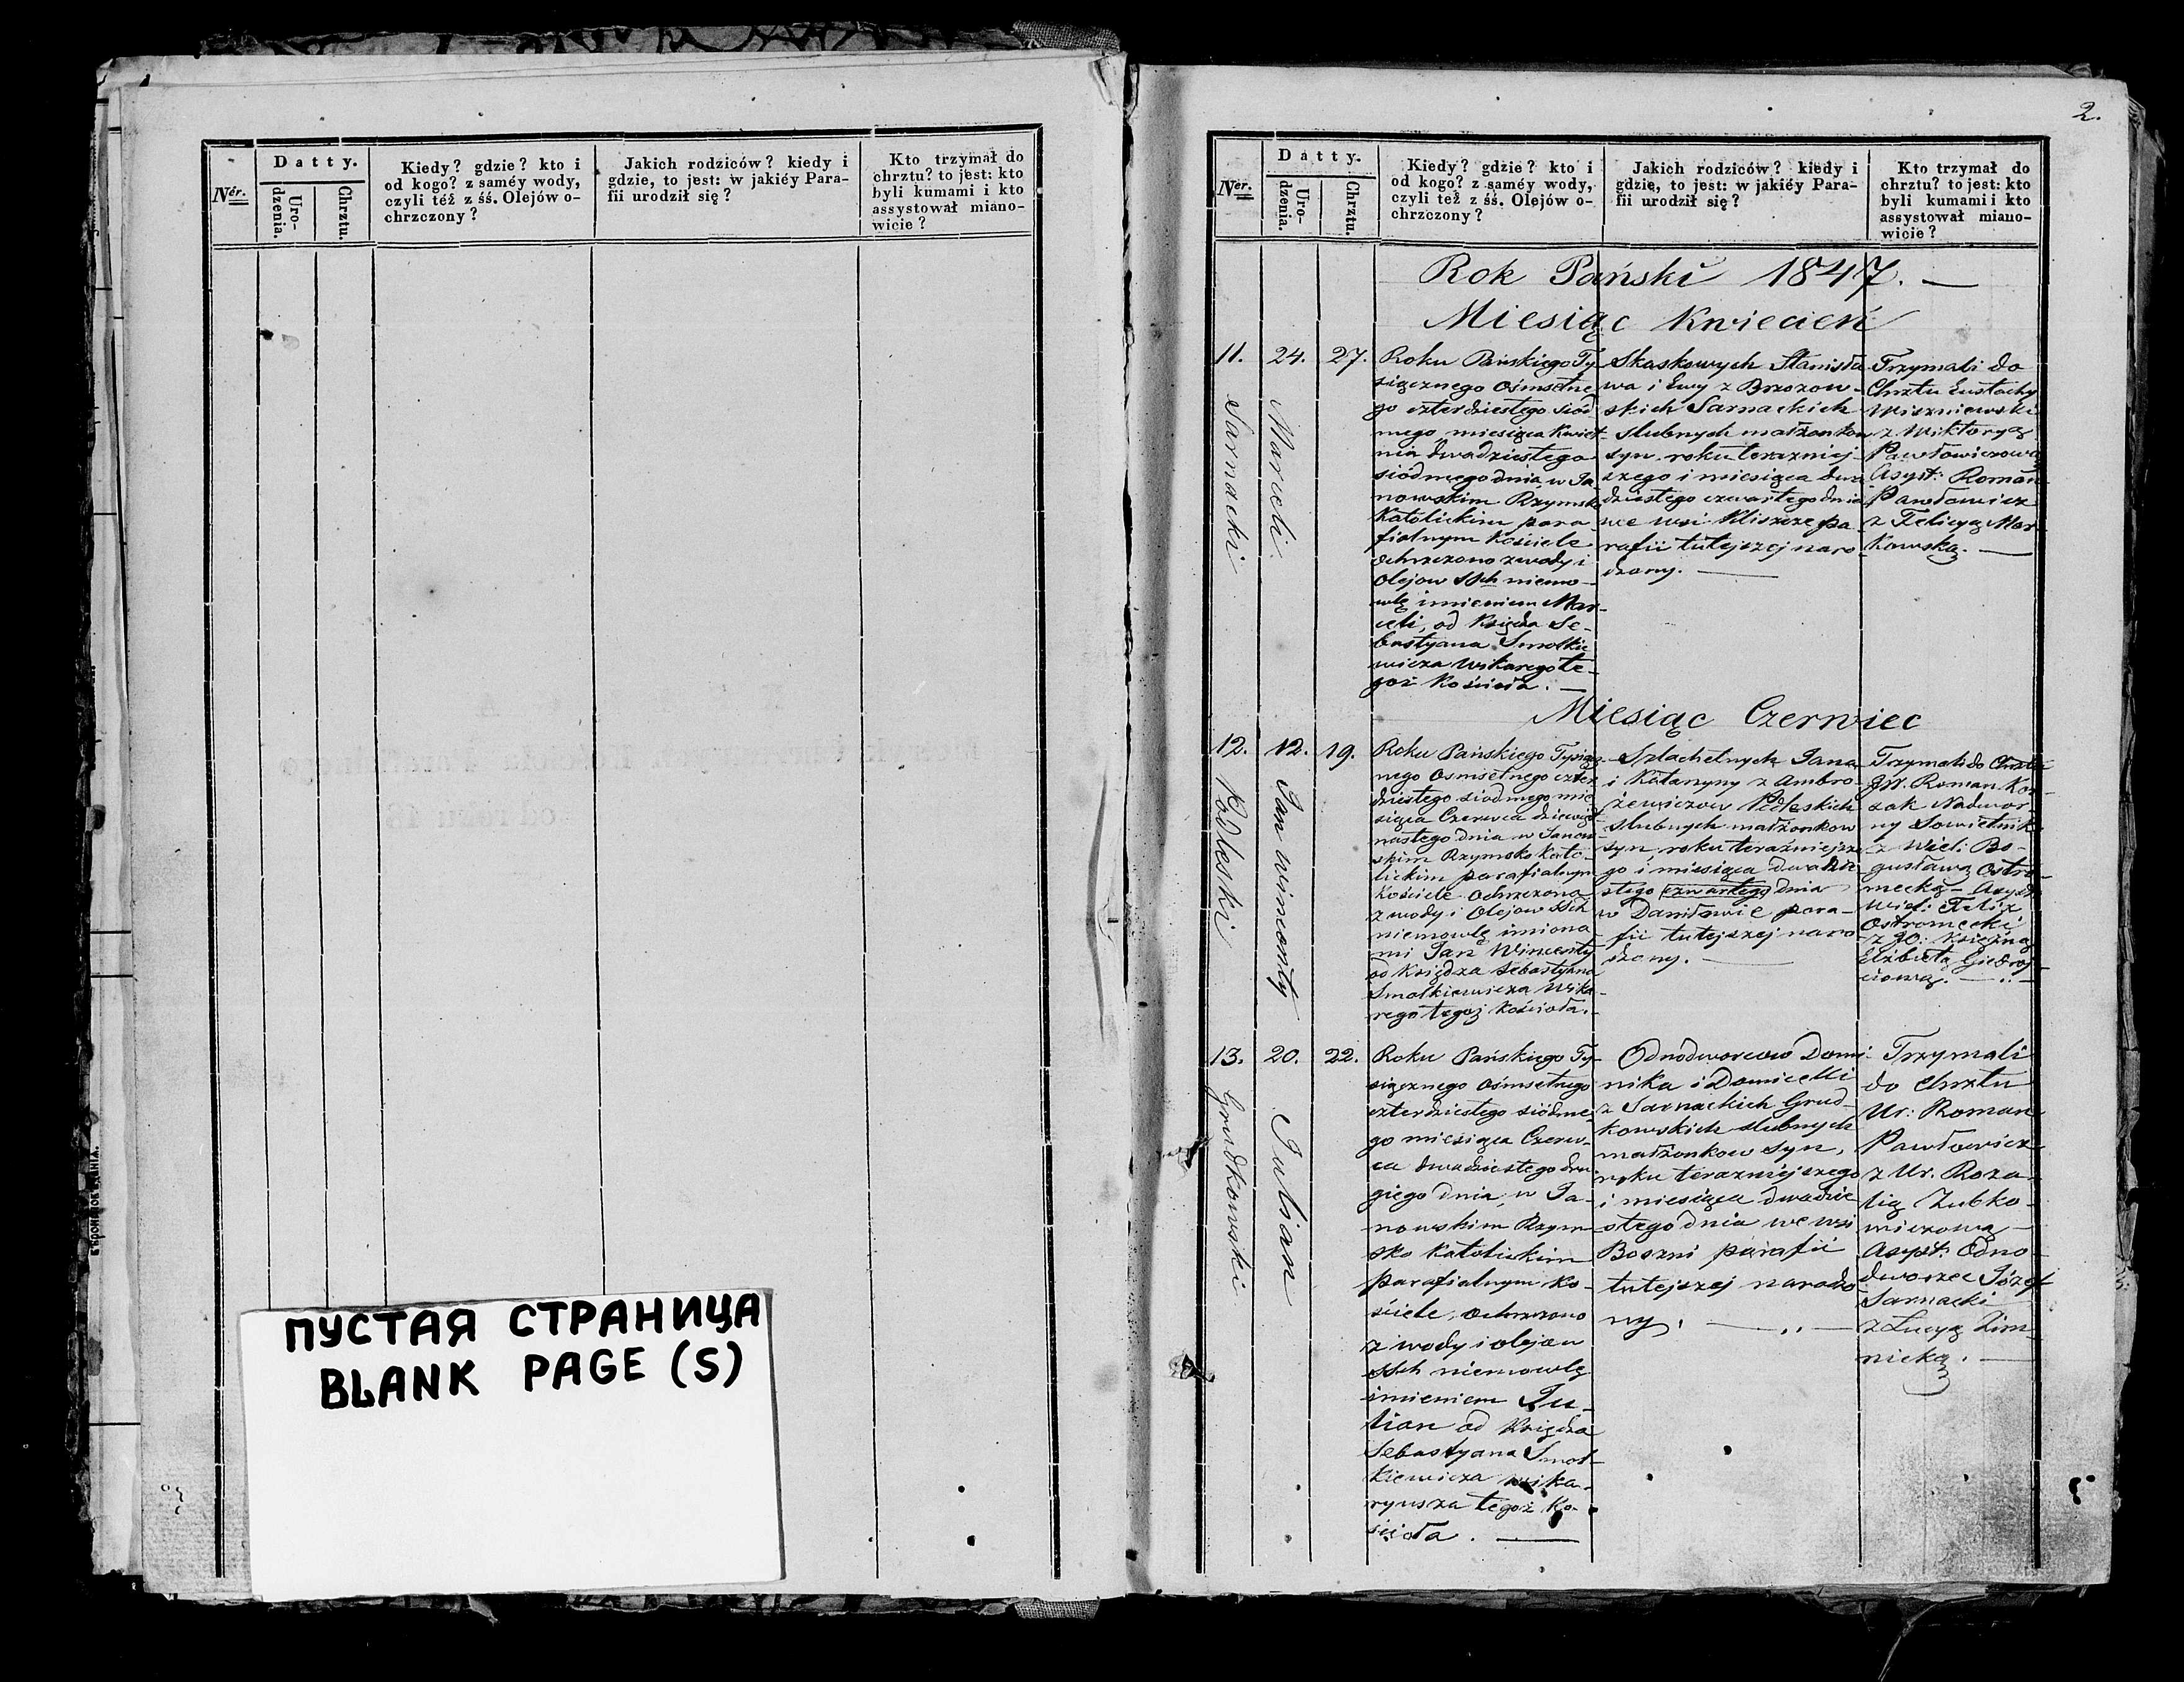 Nér.
Datty.
Uro-
dzenia.
Chrztu.
Kiedy? gdzie? kto i
od kogo? z saméy wody,
czyli téż z śś. Olejów o-
chrzczony?
Jakich rodziców? kiedy i
gdzie, to jest: w jakiéy Para-
fii urodził się?
Kto trzymał do
chrztu? to jest: kto
byli kumami i kto
assystował miano-
wicie?
ПУСТАЯ СТРАНИЦА
BLANK PAGE (S)
2.
Nér.
Datty.
Uro-
dzenia.
Chrztu.
Kiedy? gdzie? kto i
od kogo? z saméy wody,
czyli też z śś. Olejów o-
chrzczony?
Jakich rodziców? kiedy i
gdzie, to jest: w jakiéy Para-
fii urodził się?
Kto trzymał do
chrztu? to jest: kto
byli kumami i kto
assystował miano-
wicie?
Rok Pański 1847. —
Miesiąc Kwiecień
11.
Sarnacki
24.
Marceli.
27.
Roku Pańskiego Ty-
siącznego ośmsetne
go czterdziestego siód
mego miesiąca Kwiet-
nia dwadziestego
siódmego dnia w Ja
nowskim Rzymsko
Katolickim para
fialnym Kościele
ochrzczono z wody i
Olejow SSch niemo-
wlę imieniem Mar-
celi, od Księdza Se-
bastyana Smolkie
wicza Wikarego te-
goż Kościoła. —
Skaskowych Stanisła
wa i Ewy z Brzozow-
skich Sarnackich
slubnych małżonkow
syn roku terazniej-
szego i miesiąca dwa
dziestego czwartego dnia
we wsi Kliszcze pa
rafii tutejszej naro
dzony. —
Trzymali do
Chrztu Eustachy
Wiszniewski
z Wiktoryą
Pawłowiczową
Asyst: Roman
Pawłowicz
z Felicyą Mar-
kowską. —
Miesiąc Czerwiec
12.
Podleski
12.
Jan Wincenty
19.
Roku Pańskiego Tysiącz-
nego Osmsetnego czter
dziestego siodmego mie
siąca Czerwca dziewięt
nastego dnia w Janow
skim Rzymsko Kato-
lickim parafialnym
Kościele Ochrzczono
z wody i Olejow SSch
niemowlę imiona
mi Jan Wincenty
od Księdza Sebastyana
Smolkiewicza Wika
rego tegoż Kościoła.
Szlachetnych Jana
i Katarzyny z Ambro-
żewiczow Podleskich
slubnych małżonkow
syn, roku terazniejsze
go i miesiąca dwadzie
stego czwartego dnia
w Daniłowie para-
fii tutejszej naro
dzony. —
Trzymali do Chrztu
JW. Roman Kor-
sak Nadwor
ny Sowietnik
z Wiel: Bo-
gusławą Ostro-
mecką — Asyst:
Wiel: Felix
Ostromęcki
z JO: Księżną
Elżbietą Giedroj-
ciową. —
13.
Grudkowski
20.
Julian
22.
Roku Pańskiego Ty-
siącznego Ośmsetnego
czterdziestego siódme
go miesiąca Czerw-
ca dwadziestego dru
giego dnia, w Ja-
nowskim Rzym-
sko Katolickim
parafialnym Ko-
ściele, ochrzczono
z wody i olejow
SSch niemowlę
imieniem Ju-
lian od Księdza
Sebastyana Smol-
kiewicza wika-
ryusza tegoż Ko-
ścioła. —
Odnodworcow Domi-
nika i Domicelli
z Sarnackich Grud-
kowskich slubnych
małżonkow syn,
roku terazniejszego
i miesiąca dwadzie
stego dnia we wsi
Boszni parafii
tutejszej narodzo
ny. —
Trzymali
do Chrztu
Ur: Roman
Pawłowicz
z Ur. Roza-
lią Zubko-
wiczową —
Asyst: Odno-
dworzec Józef
Sarnacki
z Lucyą Zim-
nicką. —